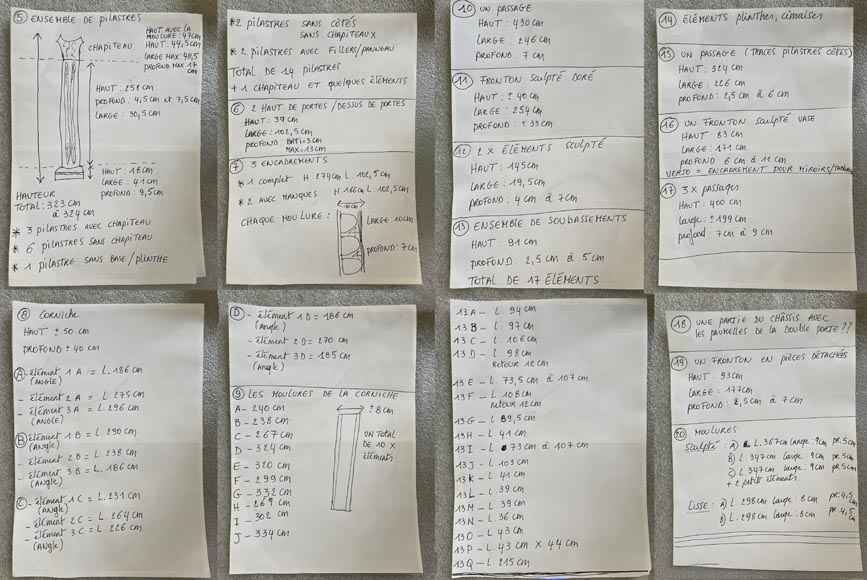 ⑤ ENSEMBLE DE PILASTRES
HAUT AVEC LA
MOULURE : 47cm
HAUT: 44,5cm
LARGE MAX: 48,5
PROFOND MAX 17
cm
CHAPITEAU
HAUT: 258 cm
PROFOND: 4,5cm et 7,5cm
LARGE: 30,5cm
HAUT: 18cm
LARGE: 41cm
PROFOND: 9,5cm
HAUTEUR
TOTAL: 323 cm
à 324 cm
* 3 PILASTRES AVEC CHAPITEAU
* 6 PILASTRES SANS CHAPITEAU
* 1 PILASTRE SANS BASE/PLINTHE
*2 PILASTRES SANS CÔTÉS
SANS CHAPITEAUX
*2 PILASTRES AVEC FILLERS/PANNEAU
TOTAL DE 14 PILASTRES
+ 1 CHAPITEAU ET QUELQUES ÉLÉMENTS
⑥ 2 HAUT DE PORTES/DESSUS DE PORTES
HAUT: 39cm
LARGE: 102,5cm
PROFOND: BÂTI=3cm
MAX=13cm
⑦ 3 ENCADREMENTS
* 1 complet H. 274cm L. 102,5cm
* 2 AVEC MANQUES H.166cm L. 102,5cm
10 cm
CHAQUE MOULURE :
LARGE: 10cm
PROFOND: 7cm
⑩ UN PASSAGE
HAUT: 430cm
LARGE: 246cm
PROFOND: 7cm
⑪ FRONTON SCULPTÉ DORÉ
HAUT: ± 40cm
LARGE: 254cm
PROFOND: ± 33cm
⑫ 2 X ÉLÉMENTS SCULPTÉ
HAUT: 145cm
LARGE: 19,5cm
PROFOND: 4cm à 7cm
⑬ ENSEMBLE DE SOUBASSEMENTS
HAUT: 91cm
PROFOND: 2,5 cm à 5cm
TOTAL DE 17 ÉLÉMENTS
⑭ ÉLÉMENTS plinthes, cimaises
⑮ UN PASSAGE (TRACES PILASTRES CÔTÉS)
HAUT: 324
LARGE: 226
PROFOND: 2,5cm à 6cm
⑯ UN FRONTON SCULPTÉ VASE
HAUT: 83cm
LARGE: 171cm
PROFOND 6cm à 11cm
VERSO = ENCADREMENT POUR MIROIRS/
⑰ 3 X passages
HAUT: 400cm
large: ±199cm
profond: 7cm à 9cm
⑧ Corniche
HAUT ± 50 cm
PROFOND ± 40 cm
Ⓐ - élément 1A = L.186cm
(ANGLE)
- élément 2A = L.275cm
- élément 3A = L.296cm
(ANGLE)
Ⓑ - élément 1B = L.290cm
(Angle)
- élément 2B = L.238cm
- élément 3B = L.186cm
(Angle)
Ⓒ - élément 1C = L.231cm
(Angle)
- élément 2C = L.264cm
- élément 3C = L.226cm
(Angle)
Ⓓ - élément 1D = 186cm
(Angle)
- élément 2D = 270cm
- élément 3D = 185cm
(Angle)
⑨ LES MOULURES DE LA CORNICHE
A- 240cm
B- 238cm
C- 267cm
D- 324cm
E- 320cm
F- 299cm
G- 332cm
H- 269cm
I- 302cm
J- 334cm
± 8cm
UN TOTAL
DE 10 X
éléments
13A- L. 94cm
13B- L. 97cm
13C- L. 106cm
13D- L. 98cm
RETOUR 12cm
13E- L. 73,5cm à 107cm
13F- L. 108cm
RETOUR 12cm
13G- L. 89,5cm
13H- L. 41cm
13I- L. 73cm à 107cm
13J- L. 103cm
13K- L. 41cm
13L- L. 39cm
13M- L. 39cm
13N- L. 36cm
13O- L. 43cm
13P- L. 43cm X 44cm
13Q- L. 215cm
⑱ UNE PARTIE DU CHÂSSIS AVEC
LES PAUMELLES DE LA DOUBLE PORTE??
⑲ UN FRONTON EN PIÈCES DÉTACHÉES
HAUT: 93cm
LARGE: 177cm
PROFOND: 2,5cm à 7cm
⑳ MOULURES
Sculpté: A) L.367cm large: 9cm pr.5cm
B) L.347cm large: 9cm pr 5cm
C) L.347cm large: 9cm pr 5cm
+ 2 petits éléments
Lisse: A) L.298cm large: 8cm pr.4,5cm
B) L.298cm large: 8cm pr.4,5cm